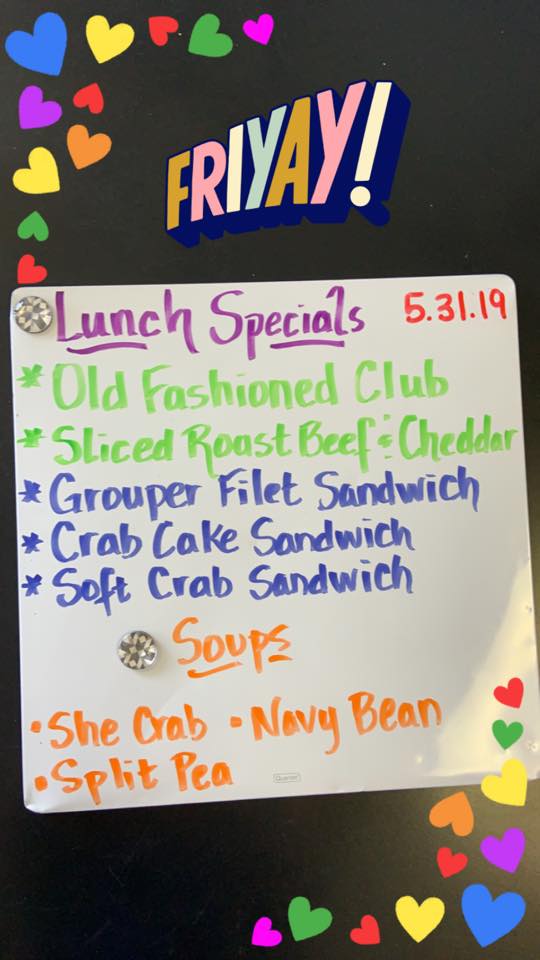 FRIYAY!
Lunch Specials 5.31.19
* Old Fashioned Club
* Sliced Roast Beef & Cheddar
* Grouper Filet Sandwich
* Crab Cake Sandwich
* Soft Crab Sandwich
Soups
• She Crab • Navy Bean
• Split Pea
Quartet